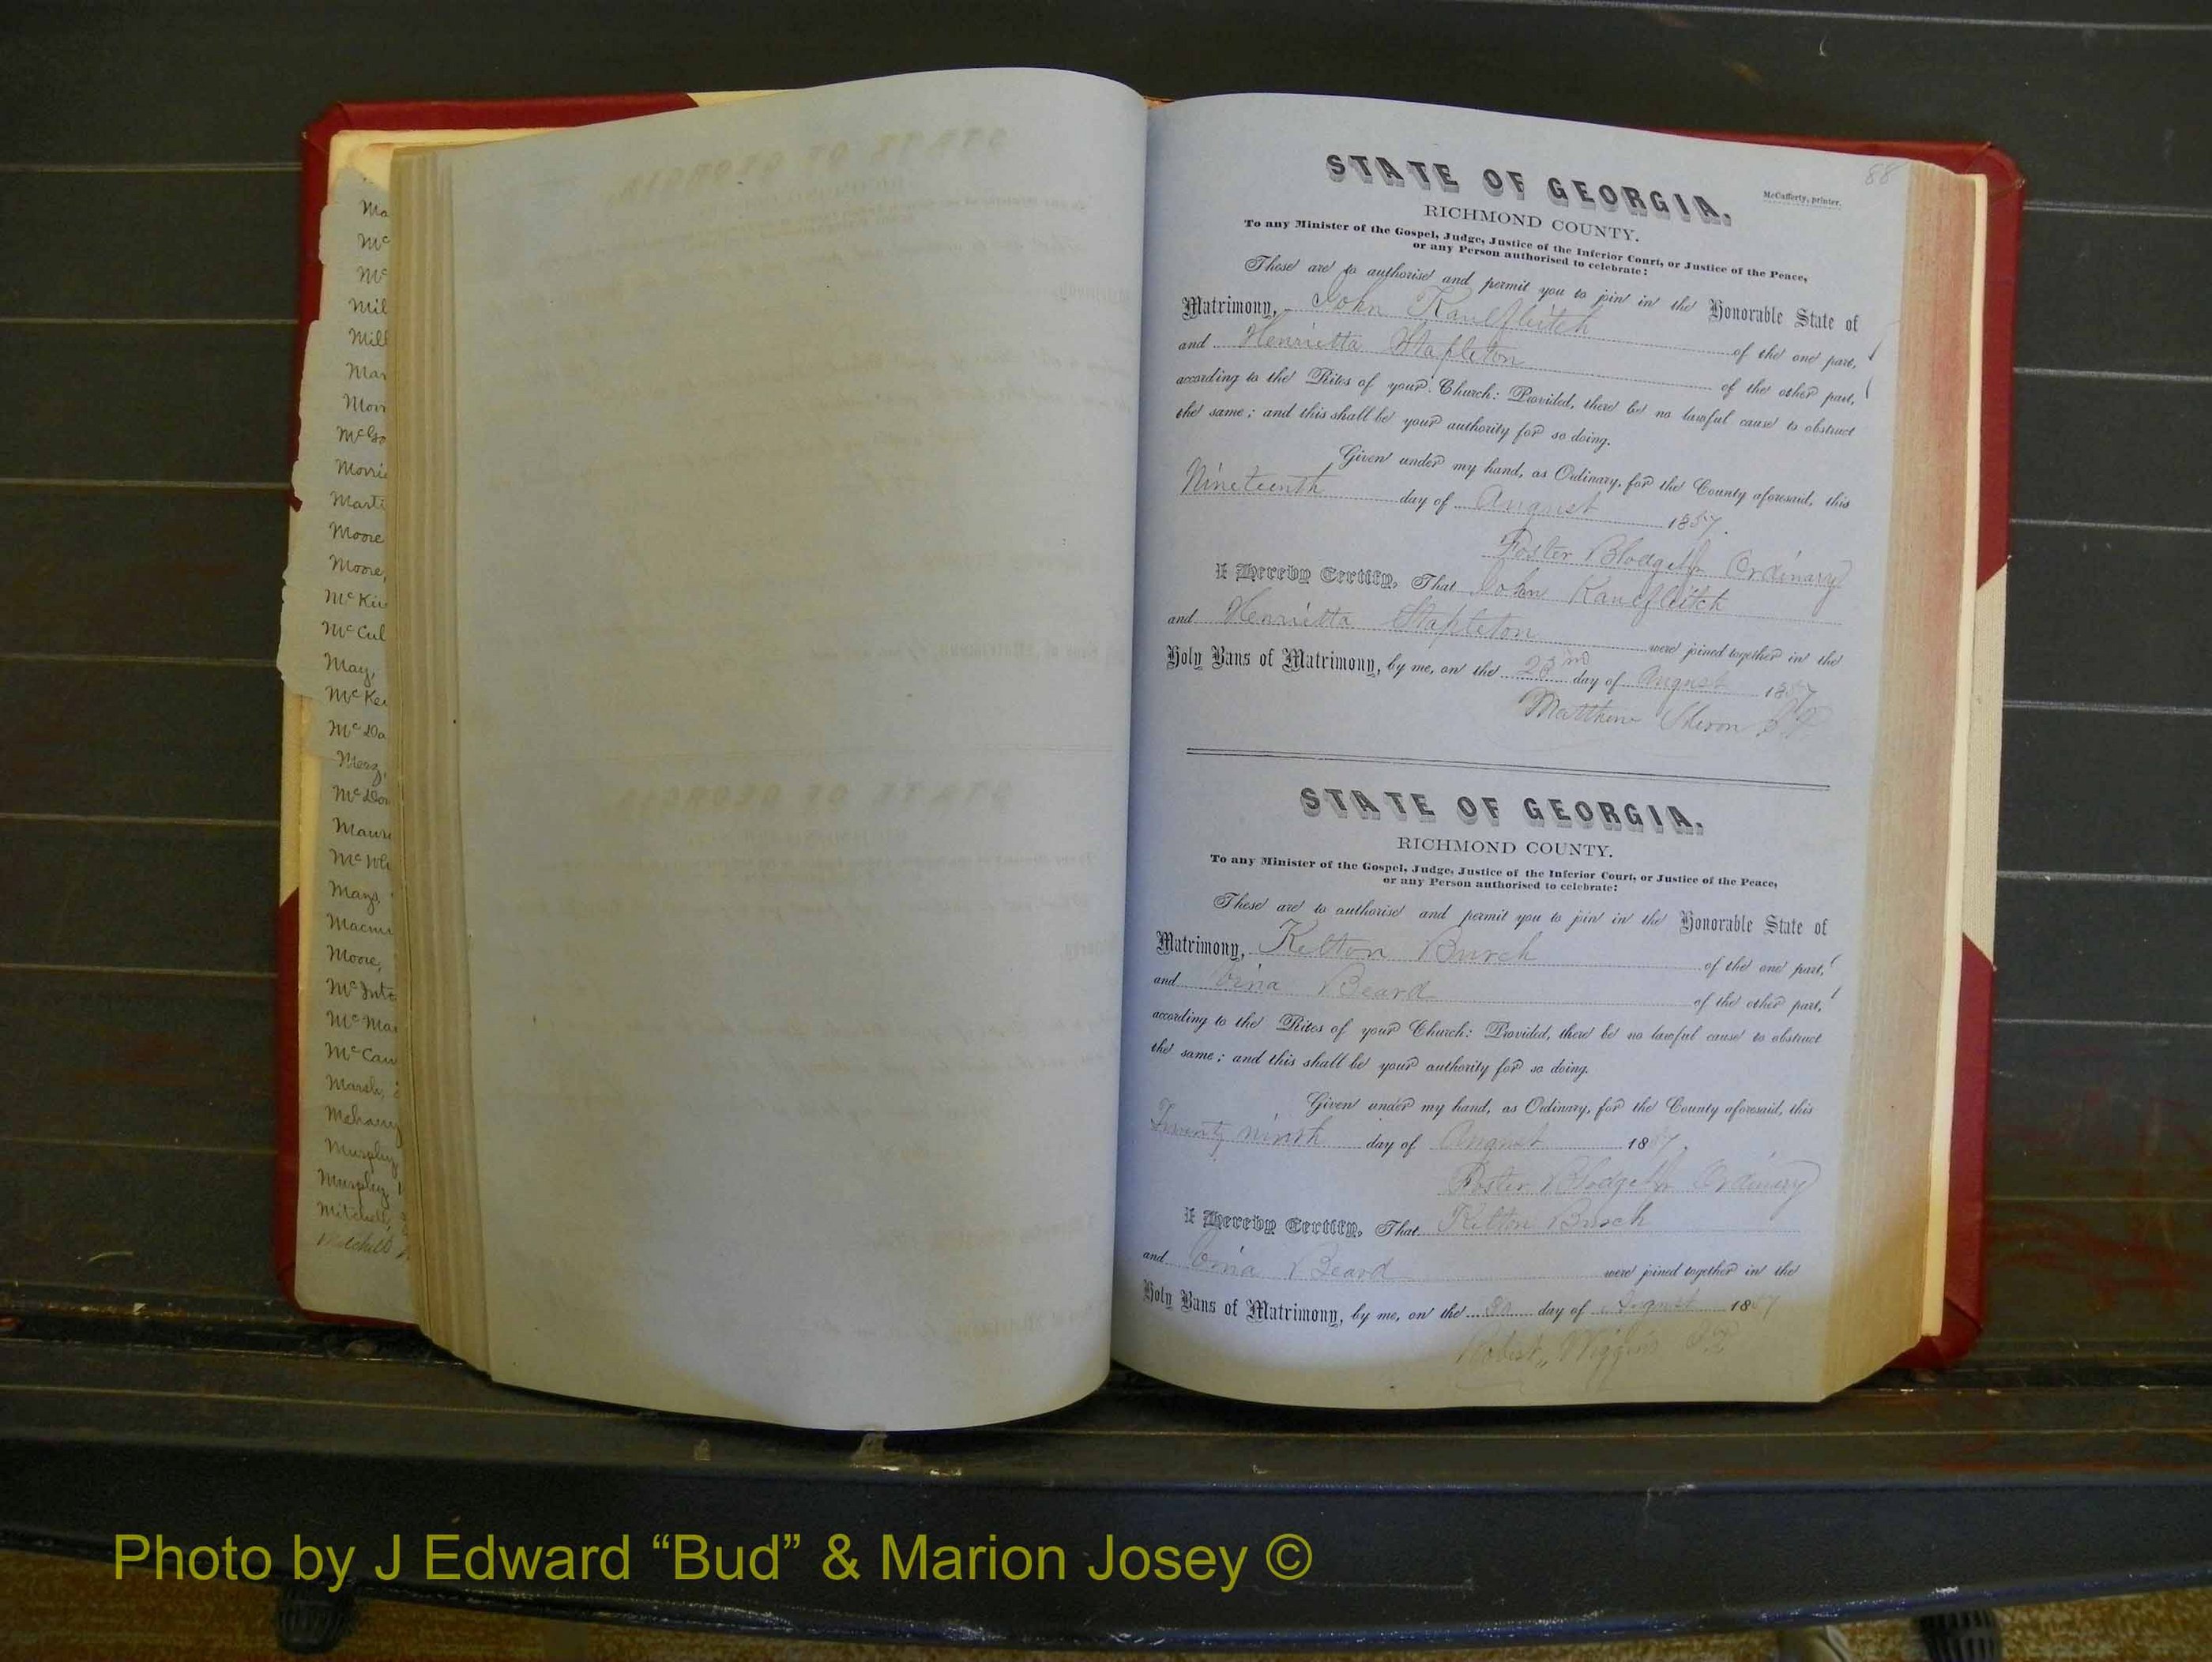 Ma
Mc
Mc
Mil
Mill
Mar
Morr
McGo
Morris
Marti
Moore
Moore,
McKin
McCul
May,
McKe
McDa
McDon
McWh
Mays,
Moore,
McInt
McMa
McCau
Marsh,
Murphy
Murphy
Mitchell,
Mitchell
88
McCafferty, printer.
STATE OF GEORGIA.
RICHMOND COUNTY.
To any Minister of the Gospel, Judge, Justice of the Inferior Court, or Justice of the Peace,
or any Person authorised to celebrate:
These are to authorise and permit you to join in the Honorable State of
Matrimony, John of the one part,
and Henrietta Stapleton of the other part,
according to the Rites of your Church: Provided, there be no lawful cause to obstruct
the same; and this shall be your authority for so doing.
Given under my hand, as Ordinary, for the County aforesaid, this
Nineteenth day of August 1857.
Foster Blodget Jr Ordinary
I Hereby Certify, That John
and Henrietta Stapleton were joined together in the
Holy Bans of Matrimony, by me, on the 23rd day of August 1857
Matthew Sheron JP
STATE OF GEORGIA.
RICHMOND COUNTY.
To any Minister of the Gospel, Judge, Justice of the Inferior Court, or Justice of the Peace,
or any Person authorised to celebrate:
These are to authorise and permit you to join in the Honorable State of
Matrimony, Kelton Burch of the one part,
and Beard of the other part,
according to the Rites of your Church: Provided, there be no lawful cause to obstruct
the same; and this shall be your authority for so doing.
Given under my hand, as Ordinary, for the County aforesaid, this
Twenty ninth day of August 1857.
Foster Blodget Jr Ordinary
I Hereby Certify, That Kelton Burch
and Beard were joined together in the
Holy Bans of Matrimony, by me, on the 30 day of August 1857
Robert Wiggins
Photo by J Edward “Bud” & Marion Josey ©